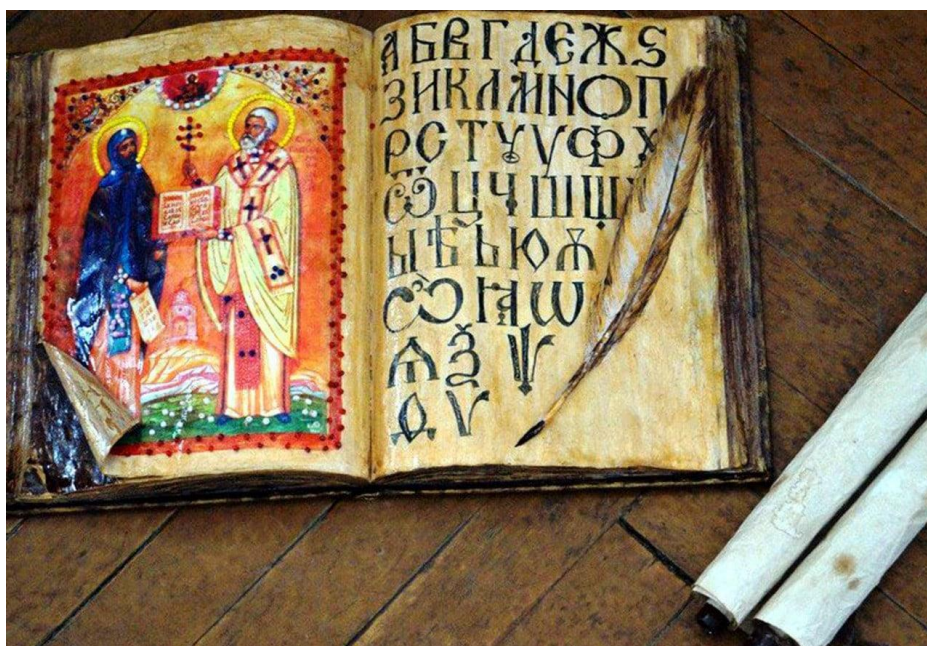 АБВГДЕЖЅ
ЗИКЛМНОП
РСТУѴФХ
ѾЦЧШЩ
ЫѢЬЮѪ
ѼꙖѠ
ѦѮѰ
ѲѴ